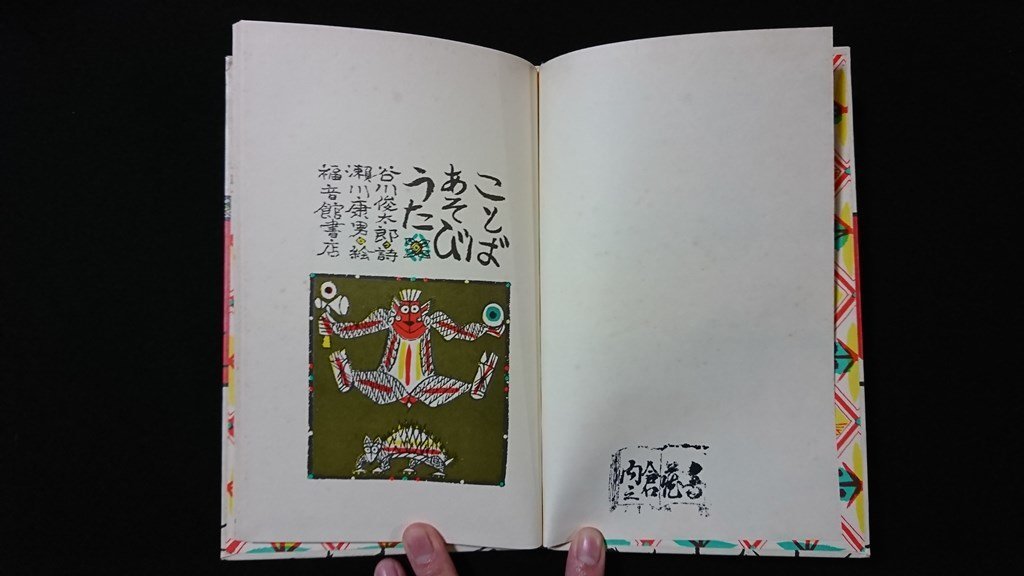 ことば
あそび
うた
谷川俊太郎・詩
瀬川康男・絵
福音館書店